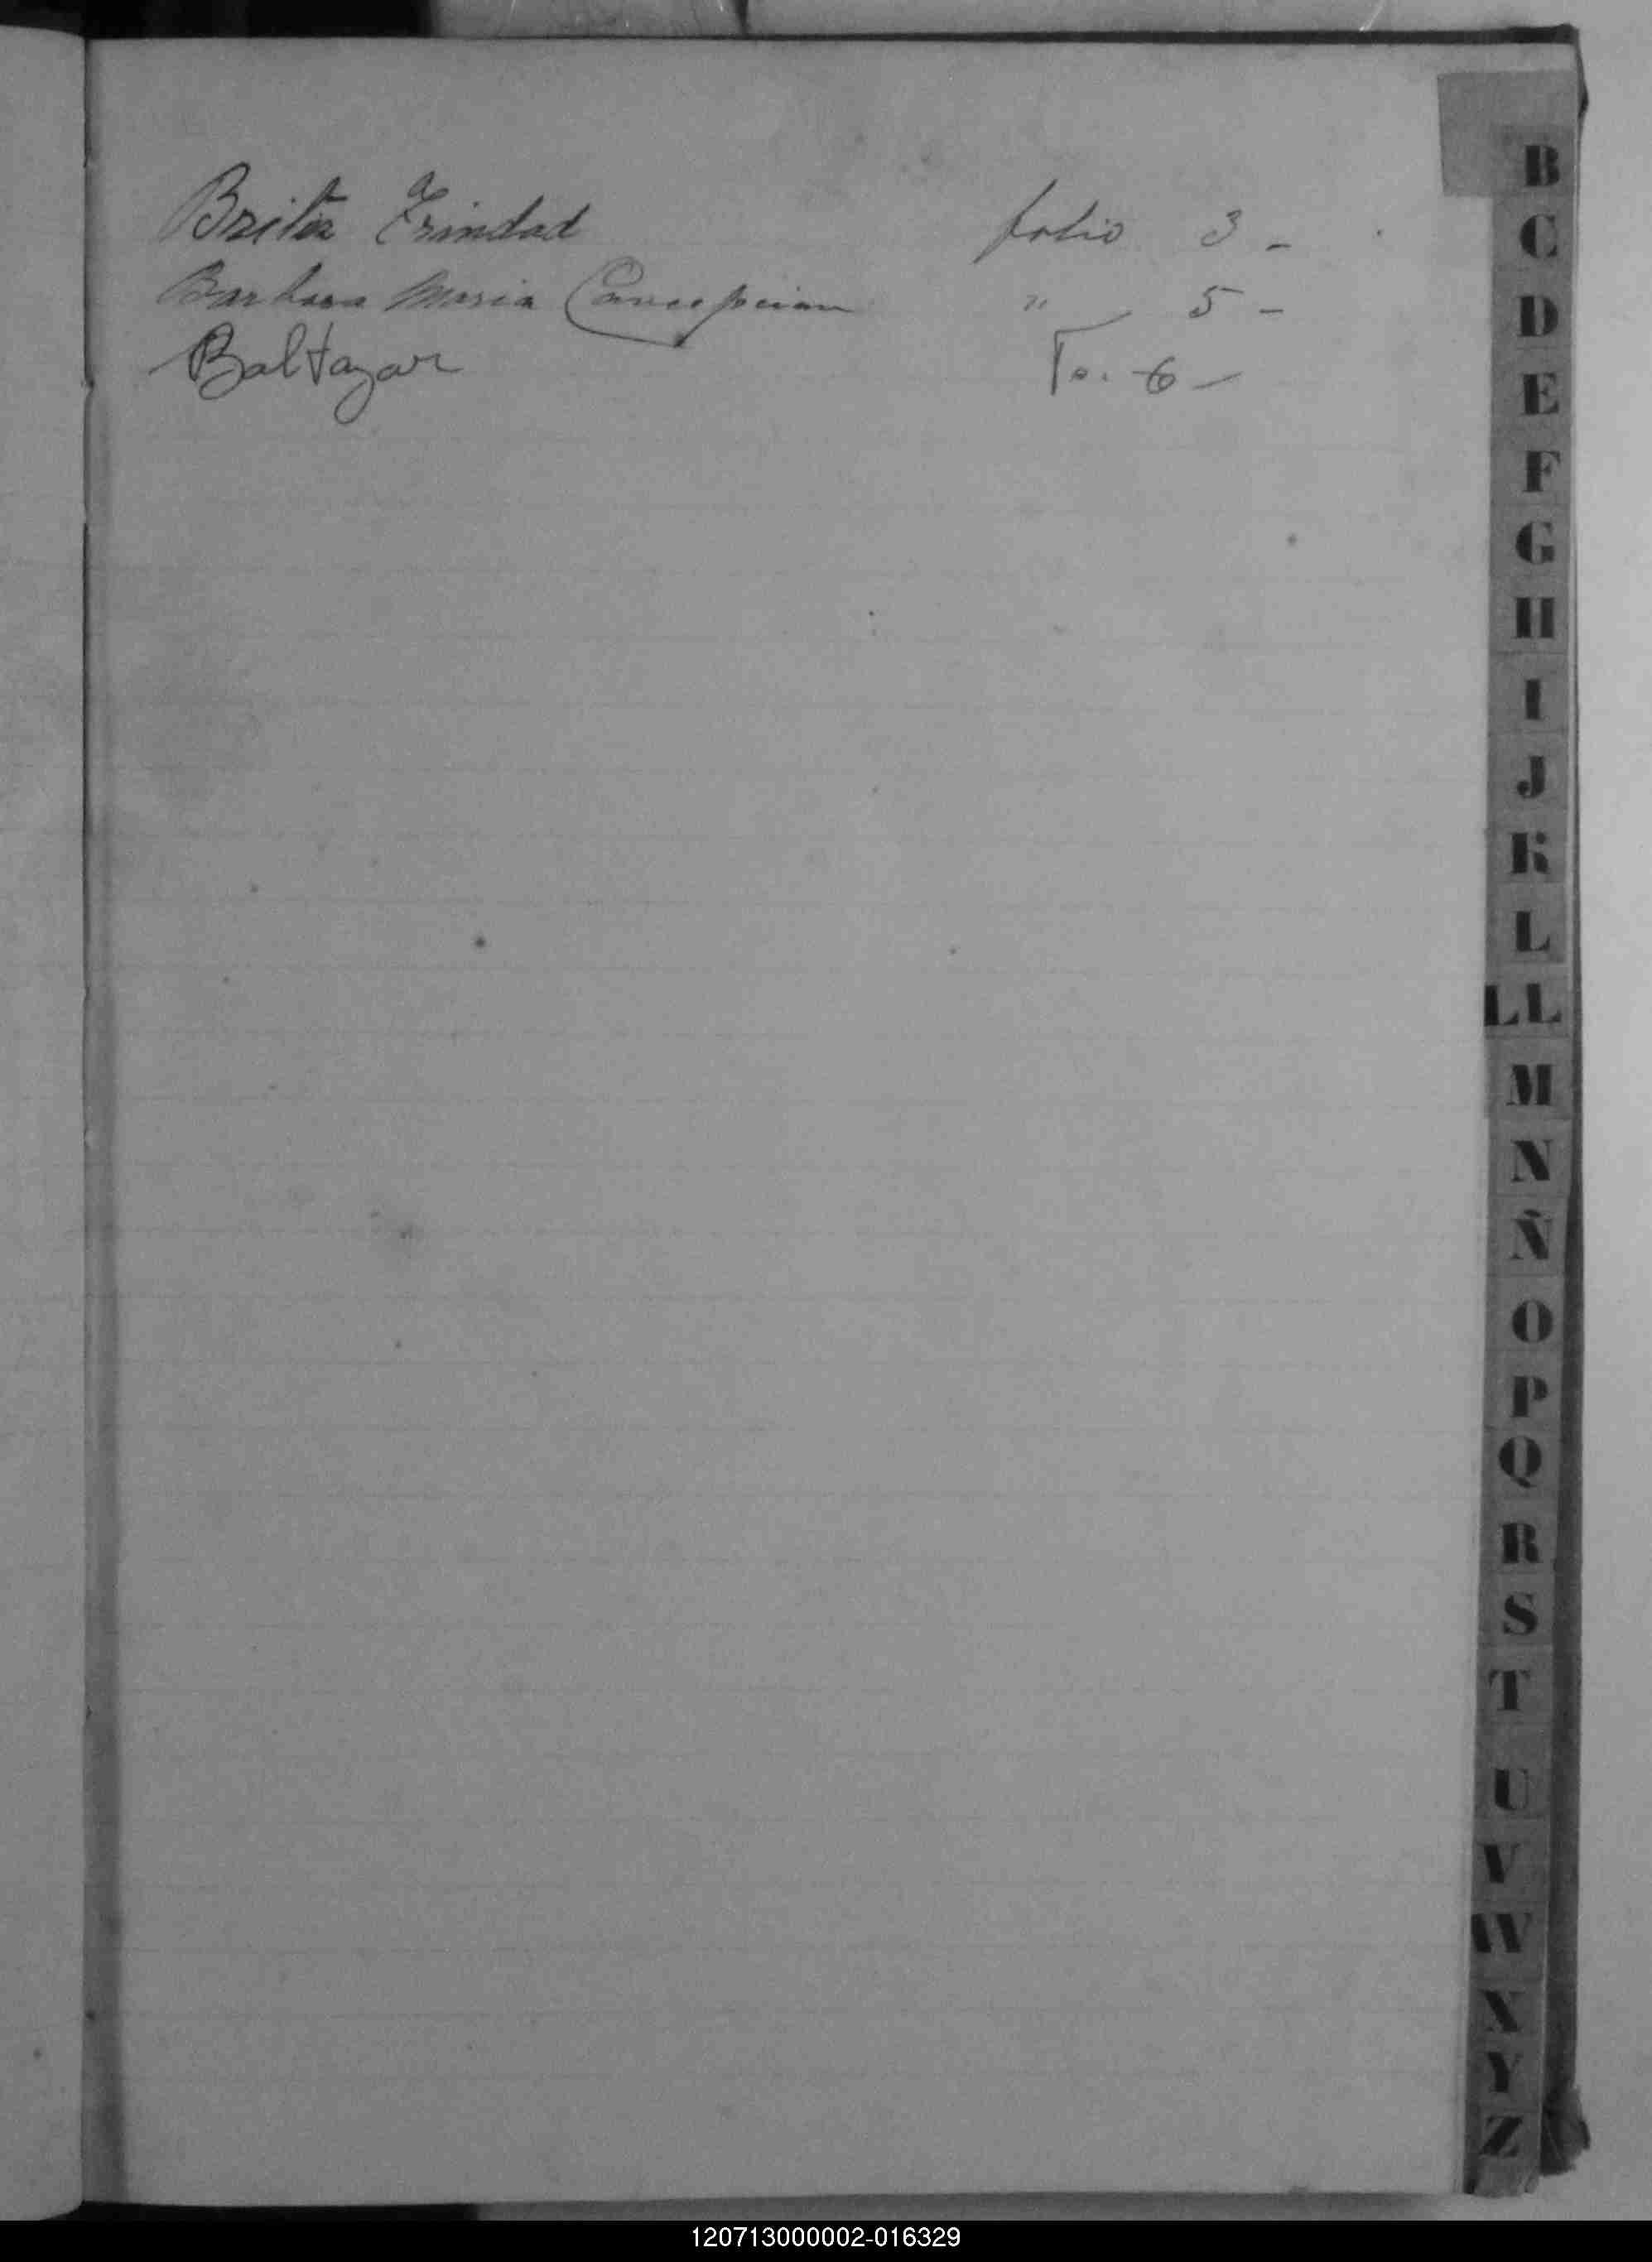 Brito Trinidad folio 3 -
Barbara Maria Concepcion " 5 -
Baltazar Fo. 6 -
B
C
D
E
F
G
H
I
J
K
L
LL
M
N
Ñ
O
P
Q
R
S
T
U
V
W
X
Y
Z
120713000002-016329